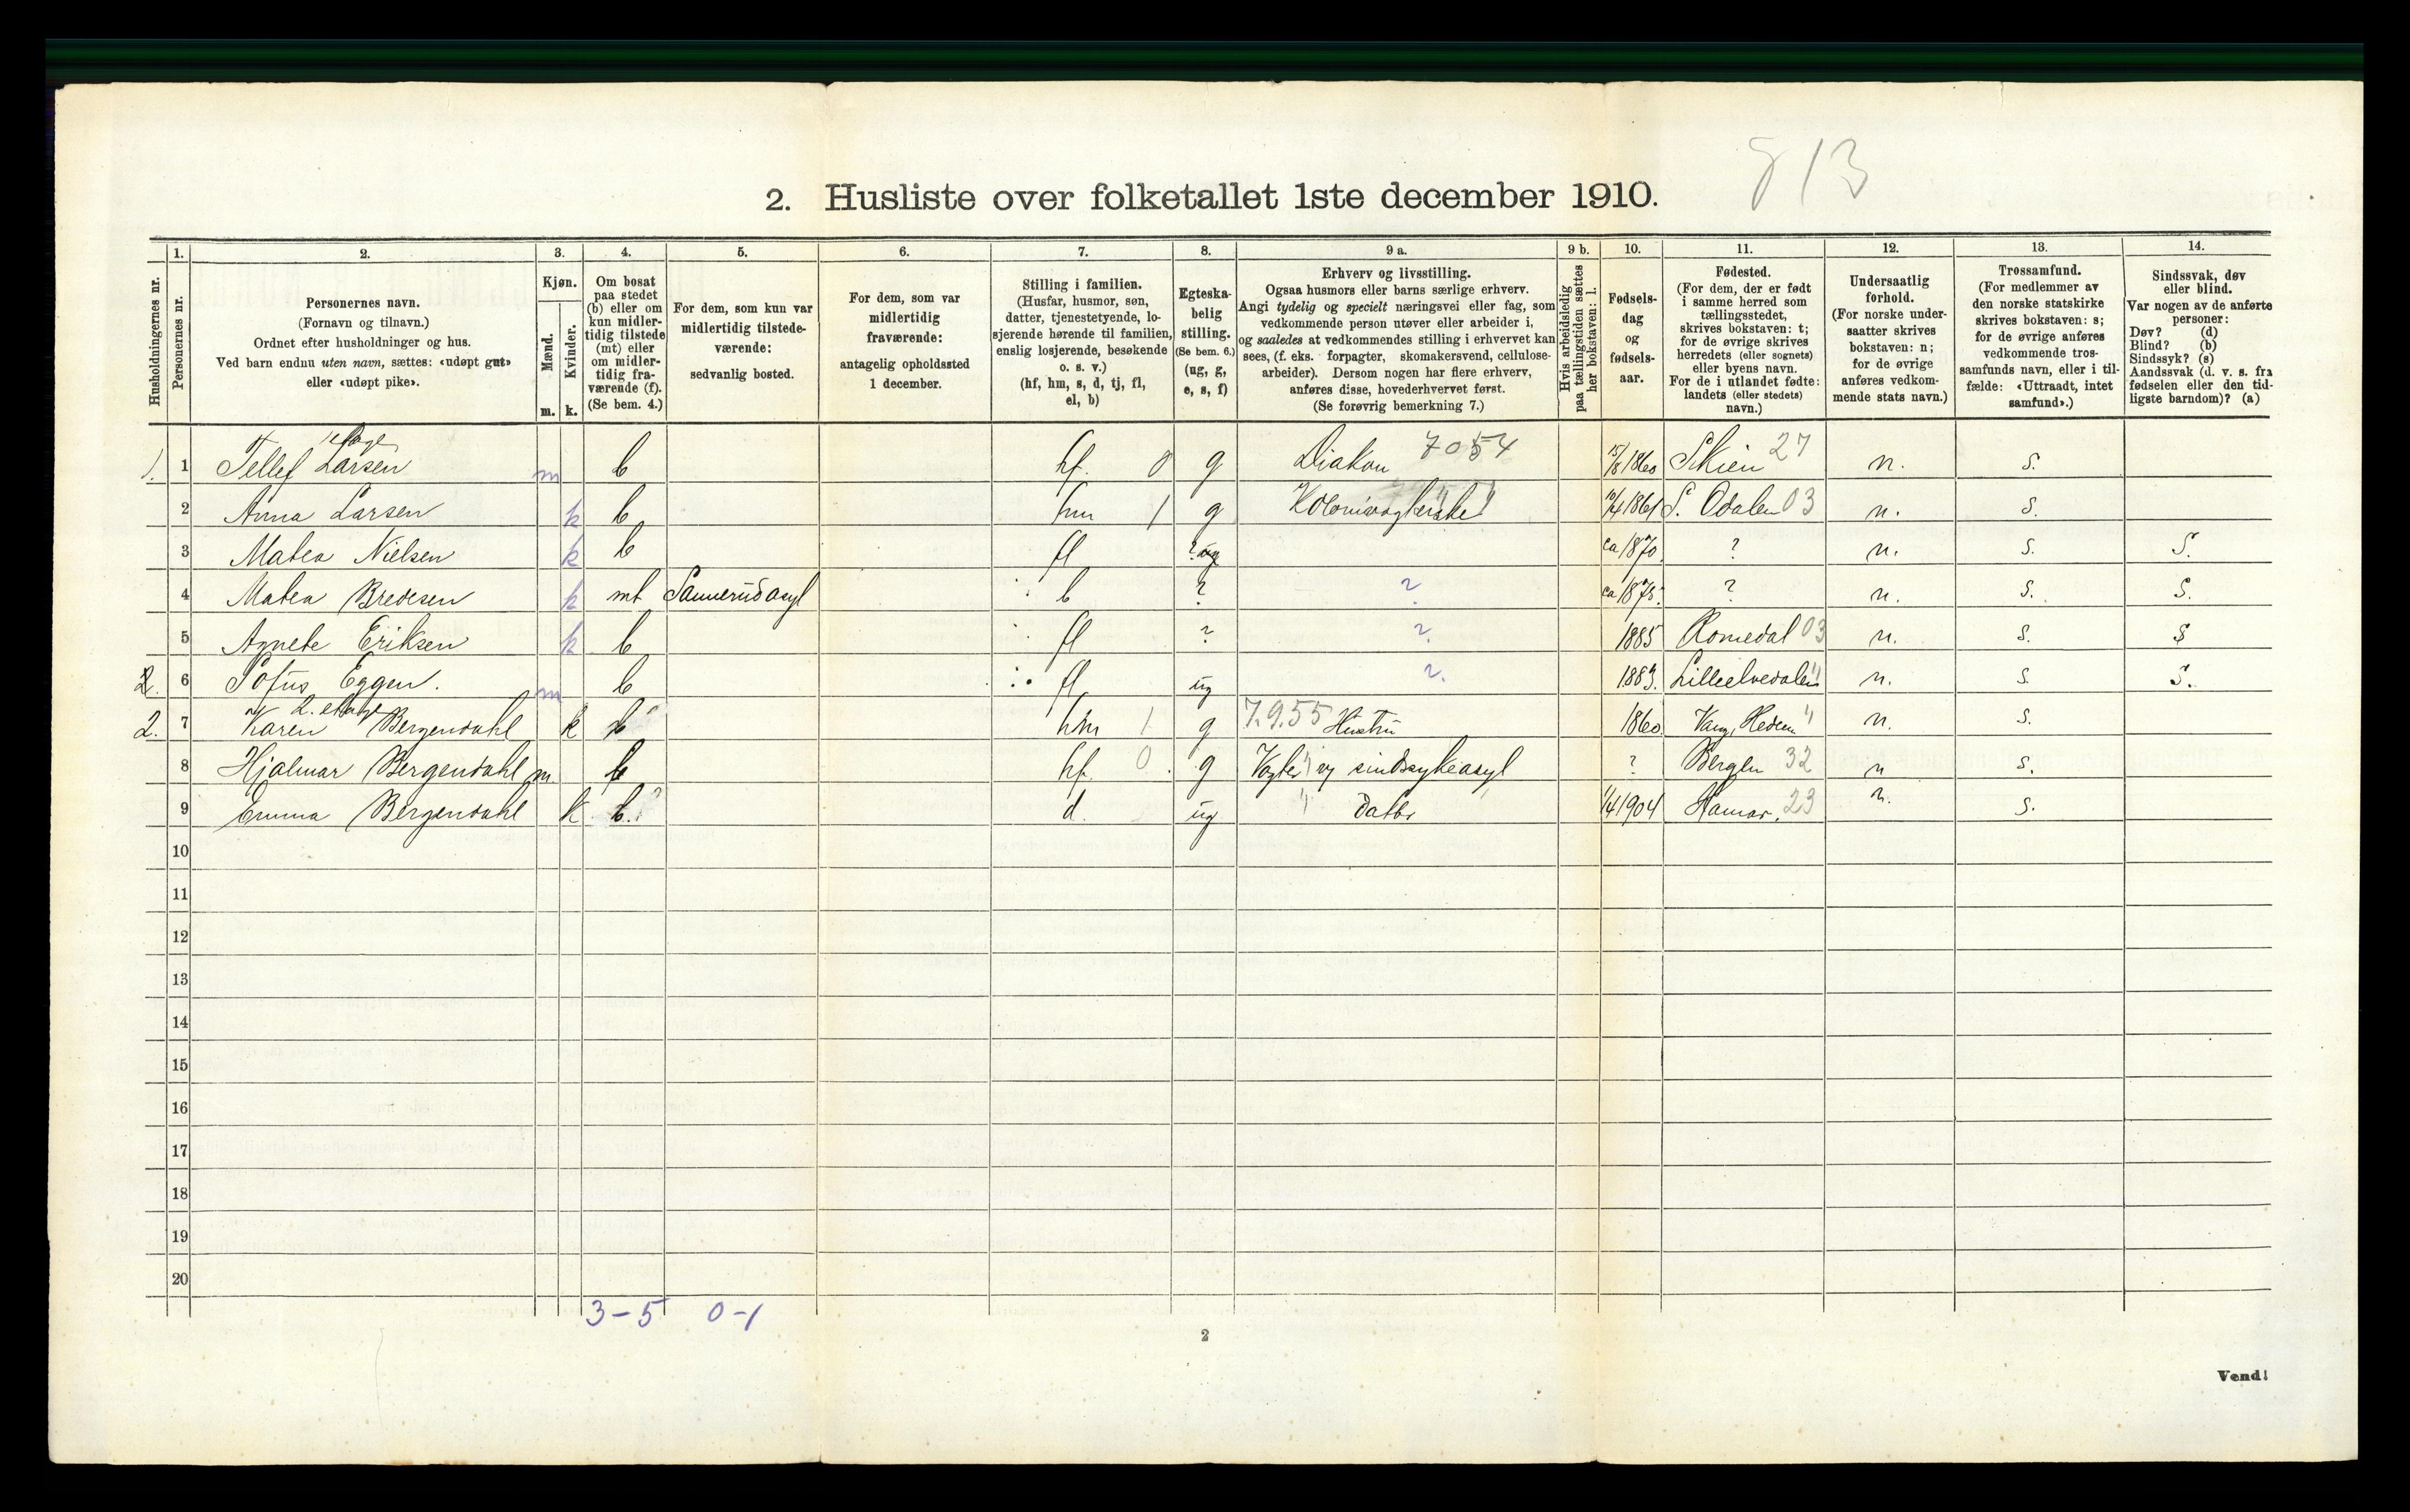 813
2. Husliste over folketallet 1ste december 1910.
Husholdningernes nr.
1.
Personernes nr.
2.
Personernes navn.
(Fornavn og tilnavn.)
Ordnet efter husholdninger og hus.
Ved barn endnu uten navn, sættes: «udøpt gut»
eller «udøpt pike».
3.
Kjøn.
Mænd.
Kvinder.
m. k.
4.
Om bosat
paa stedet
(b) eller om
kun midler-
tidig tilstede
(mt) eller
om midler-
tidig fra-
værende (f).
(Se bem. 4.)
5.
For dem, som kun var
midlertidig tilstede-
værende:
sedvanlig bosted.
6.
For dem, som var
midlertidig
fraværende:
antagelig opholdssted
1 december.
7.
Stilling i familien.
(Husfar, husmor, søn,
datter, tjenestetyende, lo-
sjerende hørende til familien,
enslig losjerende, besøkende
o. s. v.)
(hf, hm, s, d, tj, fl,
el, b)
8.
Egteska-
belig
stilling.
(Se bem. 6.)
(ug, g,
e, s, f)
9 a.
Erhverv og livsstilling.
Ogsaa husmors eller barns særlige erhverv.
Angi tydelig og specielt næringsvei eller fag, som
vedkommende person utøver eller arbeider i,
og saaledes at vedkommendes stilling i erhvervet kan
sees, (f. eks. forpagter, skomakersvend, cellulose-
arbeider). Dersom nogen har flere erhverv,
anføres disse, hovederhvervet først.
(Se forøvrig bemerkning 7.)
9 b.
Hvis arbeidsledig
paa tællingstiden sættes
her bokstaven: l.
10.
Fødsels-
dag
og
fødsels-
aar.
11.
Fødested.
(For dem, der er født
i samme herred som
tællingsstedet,
skrives bokstaven: t;
for de øvrige skrives
herredets (eller sognets)
eller byens navn.
For de i utlandet fødte:
landets (eller stedets)
navn.)
12.
Undersaatlig
forhold.
(For norske under-
saatter skrives
bokstaven: n;
for de øvrige
anføres vedkom-
mende stats navn.)
13.
Trossamfund.
(For medlemmer av
den norske statskirke
skrives bokstaven: s;
for de øvrige anføres
vedkommende tros-
samfunds navn, eller i til-
fælde: «Uttraadt, intet
samfund».)
14.
Sindssvak, døv
eller blind.
Var nogen av de anførte
personer:
Døv? (d)
Blind? (b)
Sindssyk? (s)
Aandssvak (d. v. s. fra
fødselen eller den tid-
ligste barndom)? (a)
1. 1 Tellef Larsen m b hf. 0 g Diakon 7054 15/8 1860 Skien 27 n. s.
2 Anna Larsen k b hm 1 g 1861 S. Odalen 03 n. s.
3 Matea Nielsen k b fl ? ug ca 1870 ? n. s. S.
4 Matea Bredesen k mt Sannerudasyl b ? ? ca 1875 ? n. s. S.
5 Agnete Eriksen k b fl ? ? 1885 Romedal 03 n. s. S
2. 6 Sofus Eggen. m b fl ug ? 1883. Lilleelvedalen " n. s. S.
2. etage
2. 7 Karen Bergendahl k b hm 1 g 7.9.55 Hustru 1860 Vang, Hedem " n. s.
8 Hjalmar Bergendahl m b hf. 0. g Vogter v sindssykeasyl ? Bergen 32 n s.
9 Emma Bergendahl k b. d. ug " Datter 1/4 1904 Hamar. 23 n. s.
10
11
12
13
14
15
16
17
18
19
20
3-5 0-1
2
Vend!